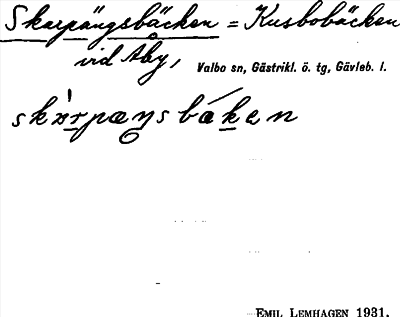 Skarpängsbäcken = Kusbobäcken
vid Åby,
Valbo sn, Gästrikl. ö. tg, Gävleb. l.
EMIL LEMHAGEN 1931.